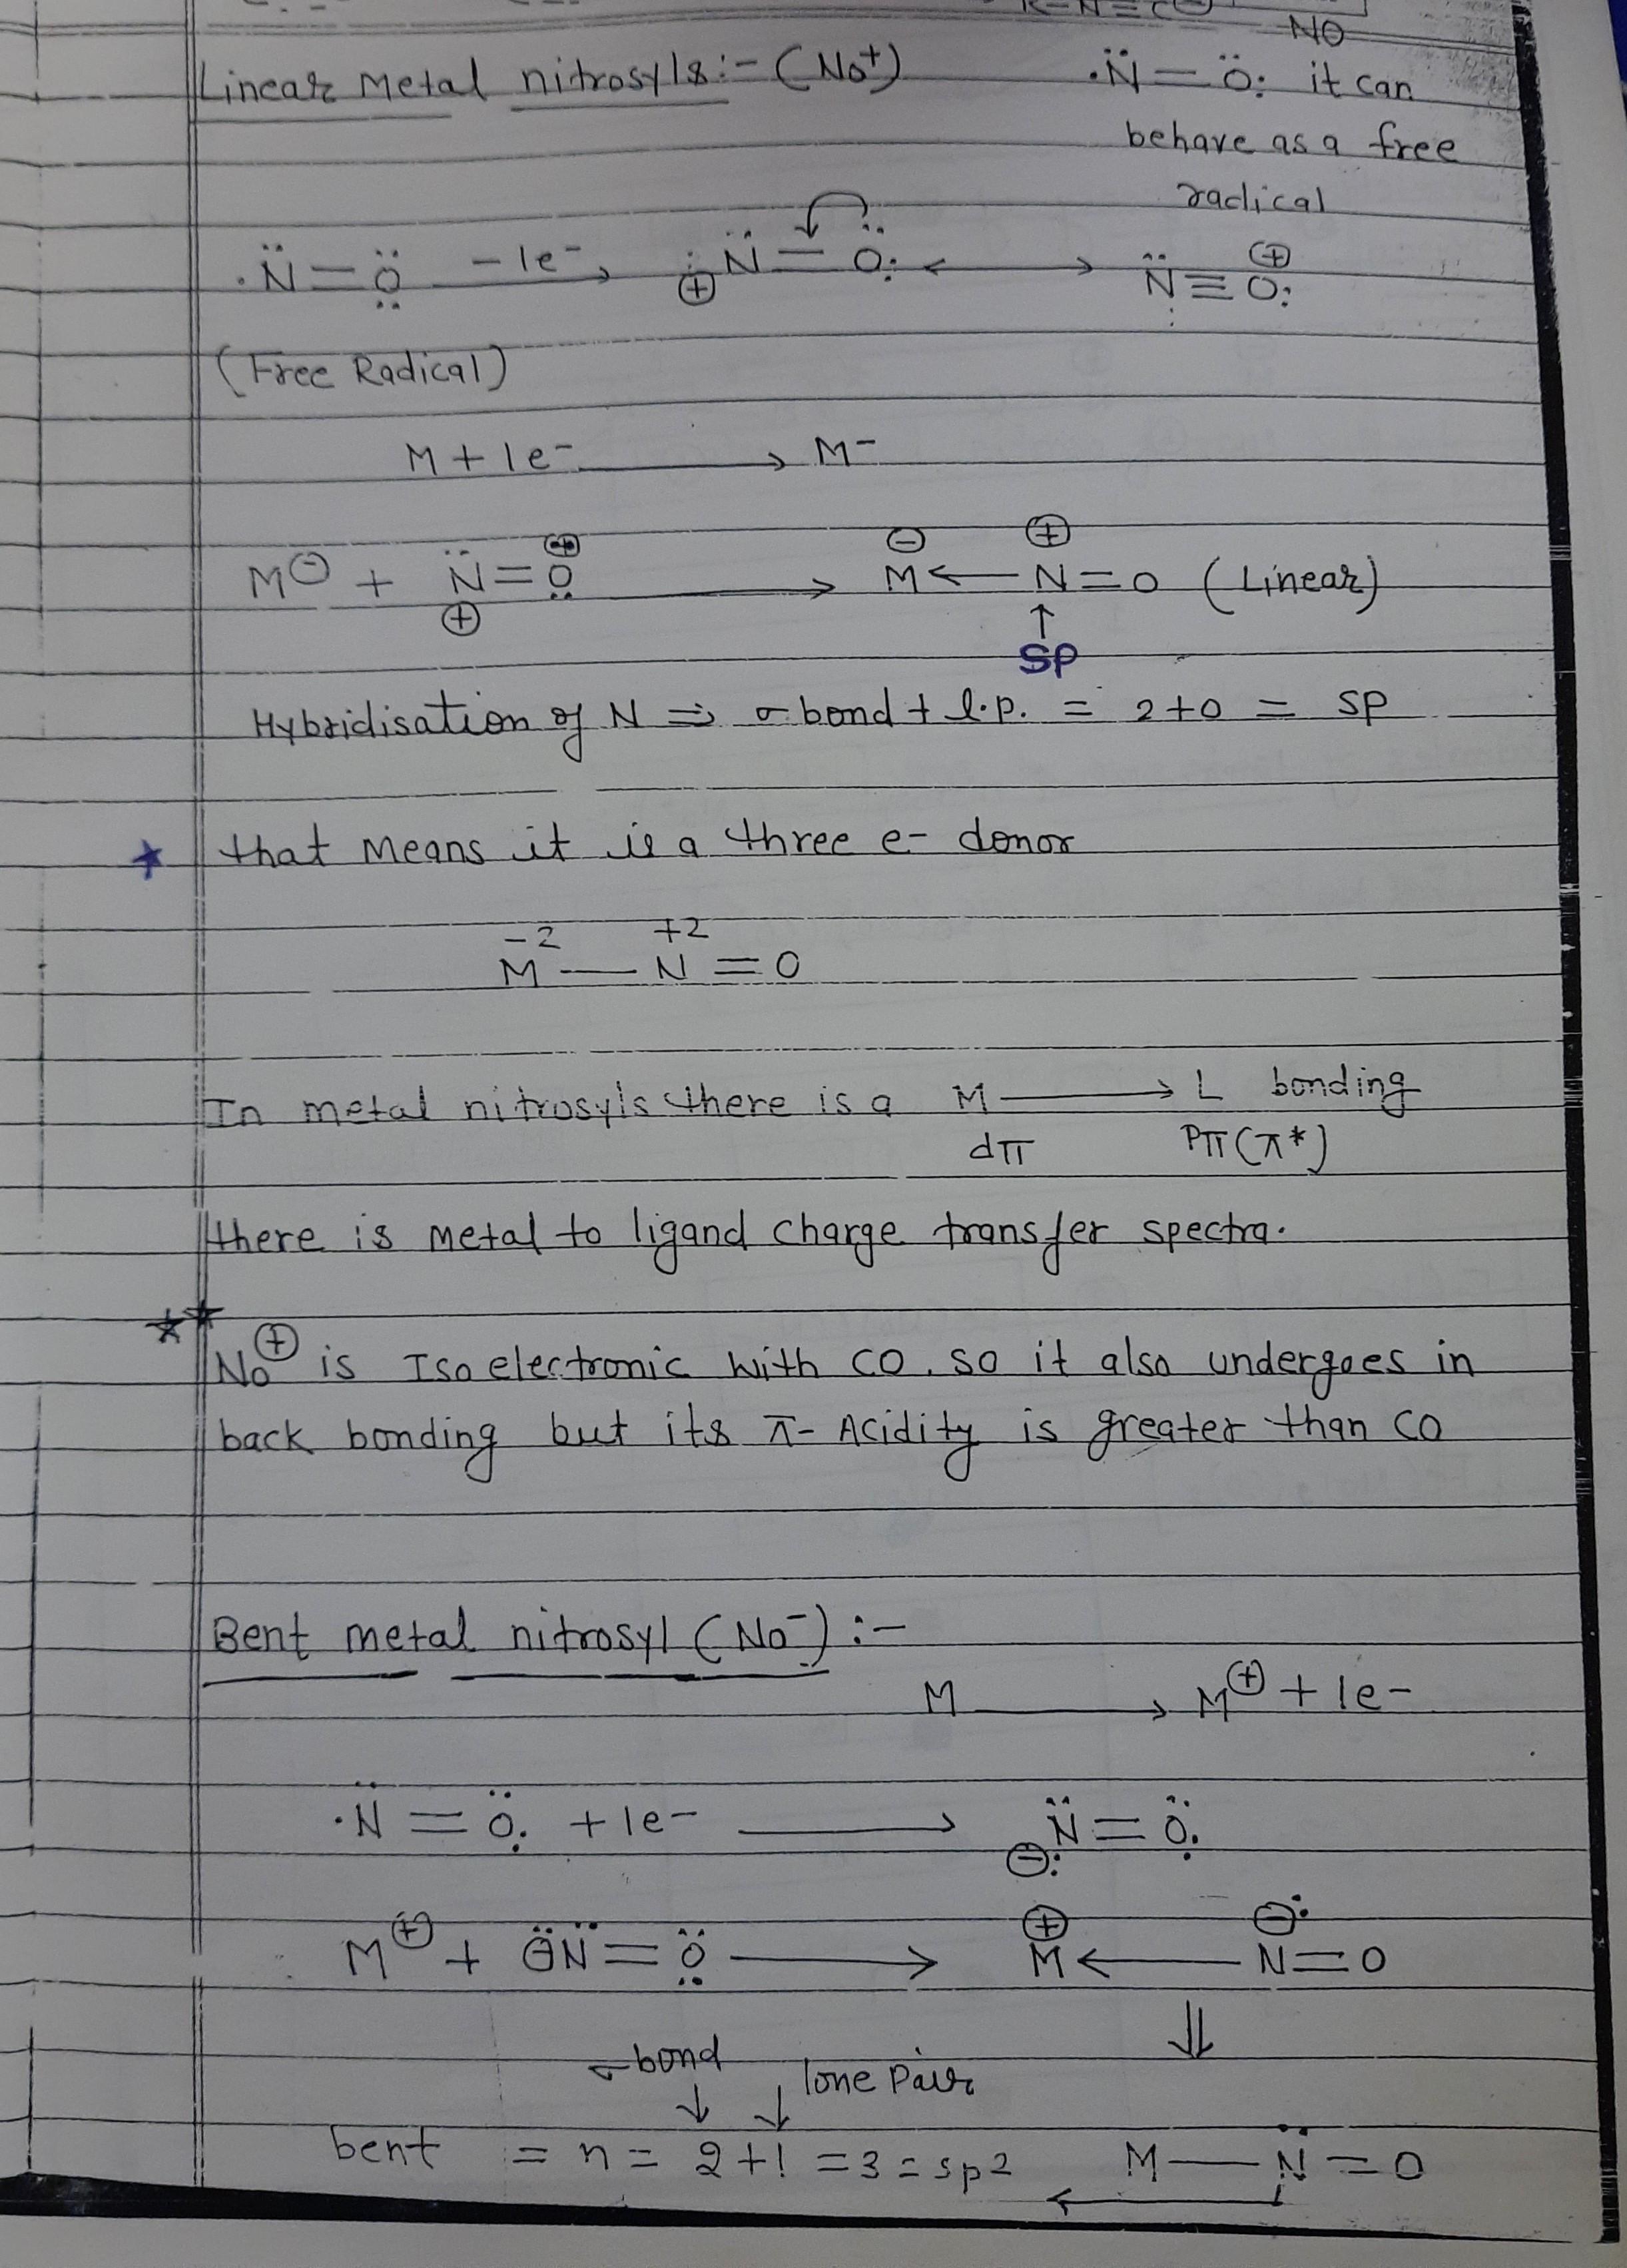 NO
Linear Metal nitrosyls:- (No⁺) ·N̈ = Ö: it can
behave as a free
radical
·N̈ = Ö̤ -1e⁻ → ⊕:N̈ = Ö: ↔ N̈ ≡ O: ⊕
(Free Radical)
M + 1e⁻ → M⁻
M⊖ + N̈ = O ⊕ → ⊖ M ← N = O ⊕ (Linear)
↑
SP
Hybridisation of N ⇒ σ bond + l.p. = 2+0 = SP
★ that Means it is a three e- donor
-2 +2
M — N = O
In metal nitrosyls there is a M → L bonding
dπ Pπ(π*)
there is metal to ligand charge transfer spectra.
★★
No⊕ is Isoelectronic with CO. so it also undergoes in
back bonding but its π- Acidity is greater than CO
Bent metal nitrosyl (No⁻) :-
M → M⊕ + 1e-
·N̈ = Ö: + 1e- → ⊖:N̈ = Ö:
M⊕ + ⊖N̈ = Ö̤ → ⊕ M ← N = O ⊖:
⇓
σ bond lone Pair
↓ ↓
bent = n = 2+1 = 3 = sp2 M — N̈ = O